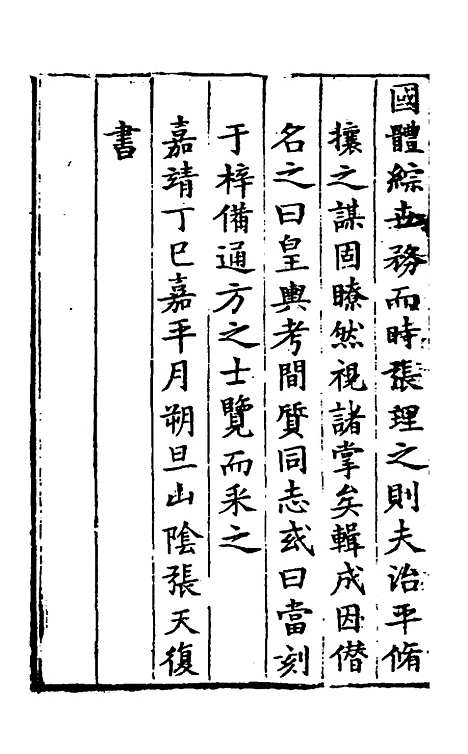 國體綜世務而時張理之則夫治平脩
攘之謀固瞭然視諸掌矣輯成因僣
名之曰皇輿考間質同志或曰當刻
于梓備通方之士覽而采之
嘉靖丁巳嘉平月朔旦山陰張天復
書